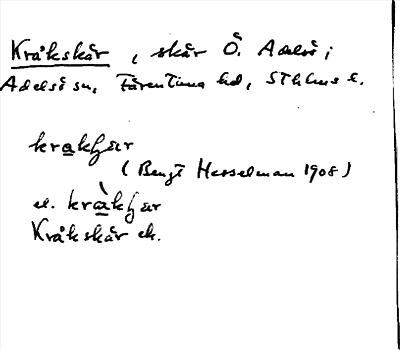 Kråkskär, skär Ö. Adelsö i
Adelsö sn, Färentuna hd, Sthlms l.
krakʃär
(Bengt Hesselman 1908)
el. kràkʃär
Kråkskär ek.